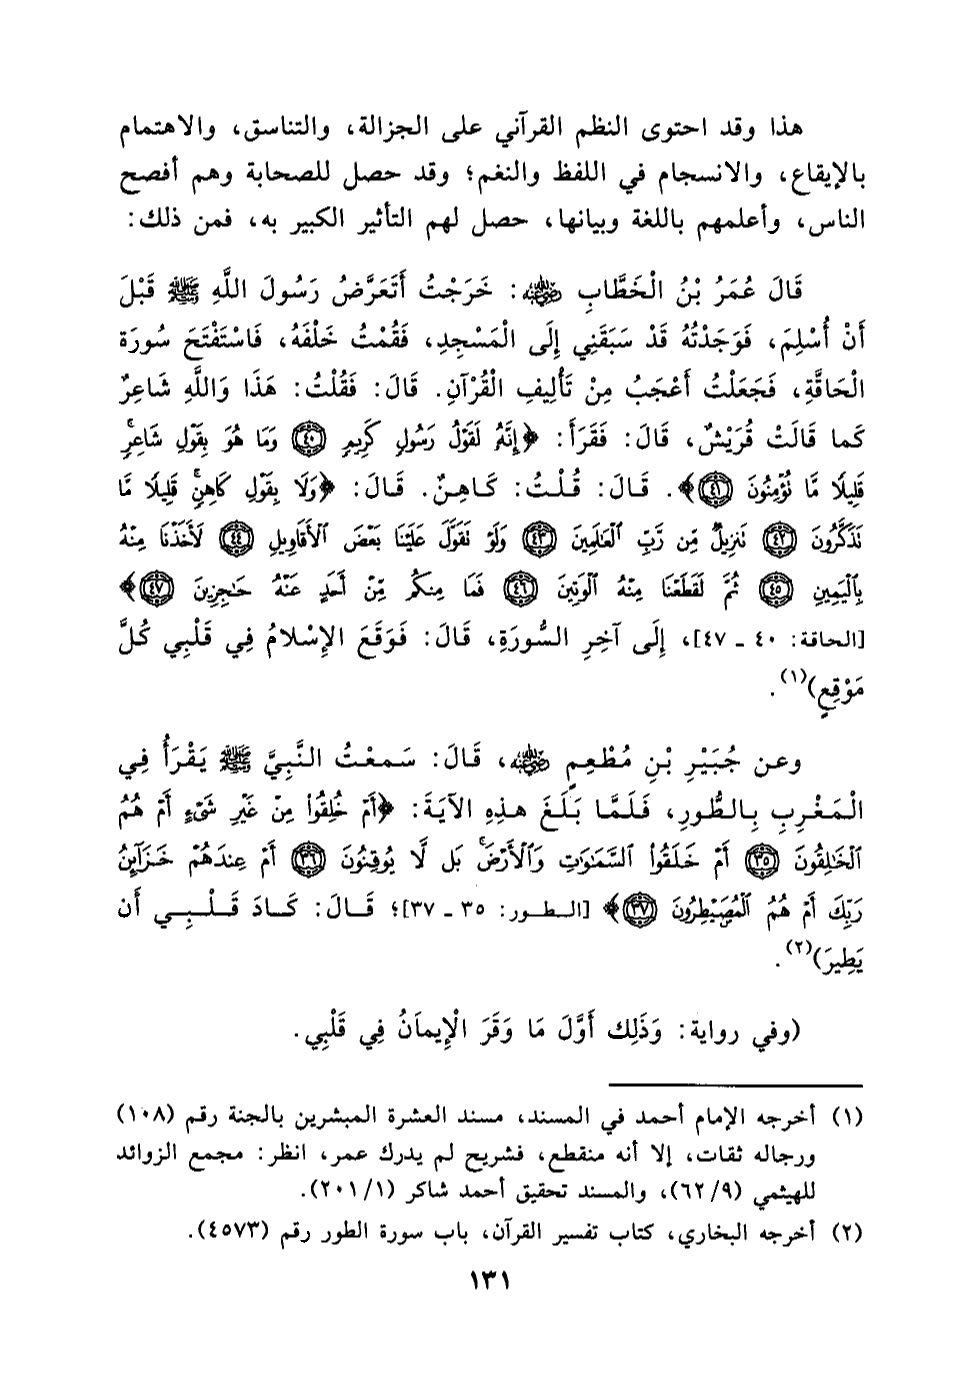 هذا وقد احتوى النظم القرآني على الجزالة، والتناسق، والاهتمام
بالإيقاع، والانسجام في اللفظ والنغم؛ وقد حصل للصحابة وهم أفصح
الناس، وأعلمهم باللغة وبيانها، حصل لهم التأثير الكبير به، فمن ذلك:
قَالَ عُمَرُ بْنُ الْخَطَّابِ رضي الله عنه: خَرَجْتُ أَتَعَرَّضُ رَسُولَ اللَّهِ ﷺ قَبْلَ
أَنْ أُسْلِمَ، فَوَجَدْتُهُ قَدْ سَبَقَنِي إِلَى الْمَسْجِدِ، فَقُمْتُ خَلْفَهُ، فَاسْتَفْتَحَ سُورَة
الْحَاقَّةِ، فَجَعَلْتُ أَعْجَبُ مِنْ تَأْلِيفِ الْقُرْآنِ. قَالَ: فَقُلْتُ: هَذَا وَاللَّهِ شَاعِرٌ
كَما قَالَتْ قُرَيْشٌ، قَالَ: فَقَرَأَ: ﴿إِنَّهُ لَقَوْلُ رَسُولٍ كَرِيمٍ ٤٠ وَمَا هُوَ بِقَوْلِ شَاعِرٍ ۚ
قَلِيلًا مَّا تُؤْمِنُونَ ٤١﴾. قَالَ: قُلْتُ: كَاهِنٌ. قَالَ: ﴿وَلَا بِقَوْلِ كَاهِنٍ ۚ قَلِيلًا مَّا
تَذَكَّرُونَ ٤٢ تَنزِيلٌ مِّن رَّبِّ ٱلْعَالَمِينَ ٤٣ وَلَوْ تَقَوَّلَ عَلَيْنَا بَعْضَ ٱلْأَقَاوِيلِ ٤٤ لَأَخَذْنَا مِنْهُ
بِٱلْيَمِينِ ٤٥ ثُمَّ لَقَطَعْنَا مِنْهُ ٱلْوَتِينَ ٤٦ فَمَا مِنكُم مِّنْ أَحَدٍ عَنْهُ حَـٰجِزِينَ ٤٧﴾
[الحاقة: ٤٠ ـ ٤٧]، إِلَى آخِرِ السُّورَةِ، قَالَ: فَوَقَعَ الإِسْلامُ فِي قَلْبِي كُلَّ
مَوْقِعٍ)(١).
وعن جُبَيْرِ بْنِ مُطْعِمٍ رضي الله عنه، قَالَ: سَمعْتُ النَّبِيَّ ﷺ يَقْرَأُ فِي
الْمَغْرِبِ بِالطُّورِ، فَلَمَّا بَلَغَ هذِهِ الآيَةَ: ﴿أَمْ خُلِقُوا۟ مِنْ غَيْرِ شَىْءٍ أَمْ هُمُ
ٱلْخَـٰلِقُونَ ٣٥ أَمْ خَلَقُوا۟ ٱلسَّمَـٰوَٰتِ وَٱلْأَرْضَ ۚ بَل لَّا يُوقِنُونَ ٣٦ أَمْ عِندَهُمْ خَزَآئِنُ
رَبِّكَ أَمْ هُمُ ٱلْمُصَۣيْطِرُونَ ٣٧﴾ [الـطـور: ٣٥ ـ ٣٧]؛ قَالَ: كَادَ قَلْبِي أَن
يَطِيرَ)(٢).
(وفي رواية: وَذَلِك أَوَّلَ مَا وَقَرَ الْإِيمَانُ فِي قَلْبِي.
(١) أخرجه الإمام أحمد في المسند، مسند العشرة المبشرين بالجنة رقم (١٠٨)
ورجاله ثقات، إلا أنه منقطع، فشريح لم يدرك عمر، انظر: مجمع الزوائد
للهيثمي (٩/ ٦٢)، والمسند تحقيق أحمد شاكر (١/ ٢٠١).
(٢) أخرجه البخاري، كتاب تفسير القرآن، باب سورة الطور رقم (٤٥٧٣).
١٣١